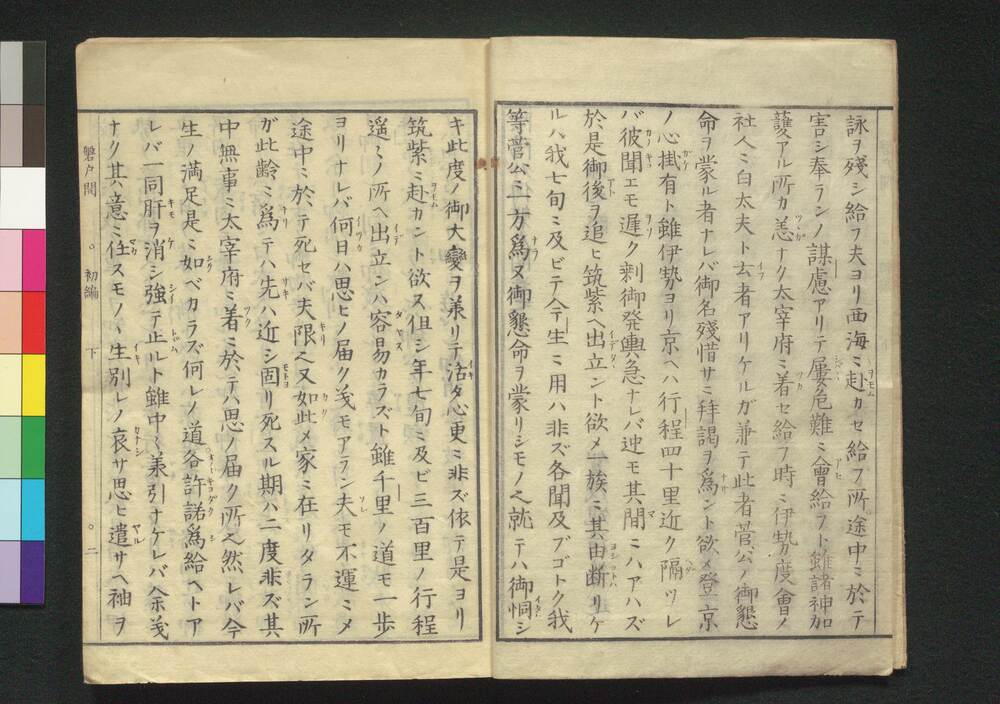 詠ヲ殘シ給フ夫ヨリ西海ミ赴カセ給フ所途中ミ於テ
害シ奉ランノ謀慮アリテ屢危難ミ會給フト雖諸神加
護アル所カ恙ナク太宰府ミ着セ給フ時ミ伊勢度會ノ
社人ミ白太夫ト云者アリケルガ兼テ此者菅公ノ御懇
命ヲ蒙ル者ナレバ御名殘惜サミ拜謁ヲ爲ント欲メ登京
ノ心掛有ト雖伊勢ヨリ京ヘハ行程四十里近ク隔ツレ
バ彼聞エモ遲ク剩御発輿急ナレバ迚モ其間ミハアハズ
於是御後ヲ追ヒ筑紫ヘ出立ント欲メ一族ミ其由断リケ
ルハ我七旬ミ及ビテ今生ミ用ハ非ズ各聞及ブゴトク我
等菅公ミ一方爲ヌ御懇命ヲ蒙リシモノ就テハ御恫シ
キ此度ノ御大變ヲ兼リテ活タ心更ミ非ズ依テ是ヨリ
筑紫ミ赴カント欲ス但シ年七旬ミ及ビ三百里ノ行程
遥ミノ所ヘ出立ンハ容易カラズト雖千里ノ道モ一歩
ヨリナレバ何日ハ思ヒノ届ク戔モアラン夫モ不運ミメ
途中ミ於テ死セバ夫限又如此メ家ミ在リタラン所
ガ此齢ミ爲テハ先ハ近シ固リ死スル期ハ二度非ズ其
中無事ミ太宰府ミ着ミ於テハ思ノ届ク所然レバ今
生ノ満足是ミ如ベカラズ何レノ道谷許諾爲給ヘトア
レバ一同肝ヲ消シ強テ止ルト雖中ミ兼引ナケレバ余戔
ナク其意ミ任スモノヽ生別レノ哀サ思ヒ遣サヘ袖ヲ
磐戸開 ○初編 下 ○二